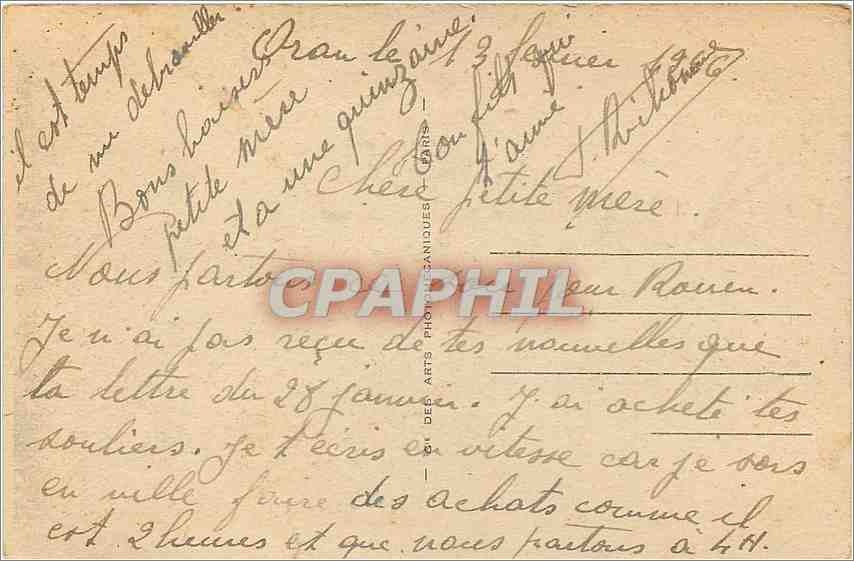 Oran le 13 février
Chère petite mère.
Nous partons ce soir pour Rouen.
Je n'ai pas reçu de tes nouvelles que
ta lettre du 28 janvier. J'ai acheté tes
souliers. Je t'écris en vitesse car je vais
en ville faire des achats comme il
est 2 heures et que nous partons à 4H.
il est temps
de me débrouiller.
Bons baisers
petite mère
et a une quinzaine.
Ton fils qui
t'aime
CIE DES ARTS PHOTOMECANIQUES - PARIS -
CPAPHIL